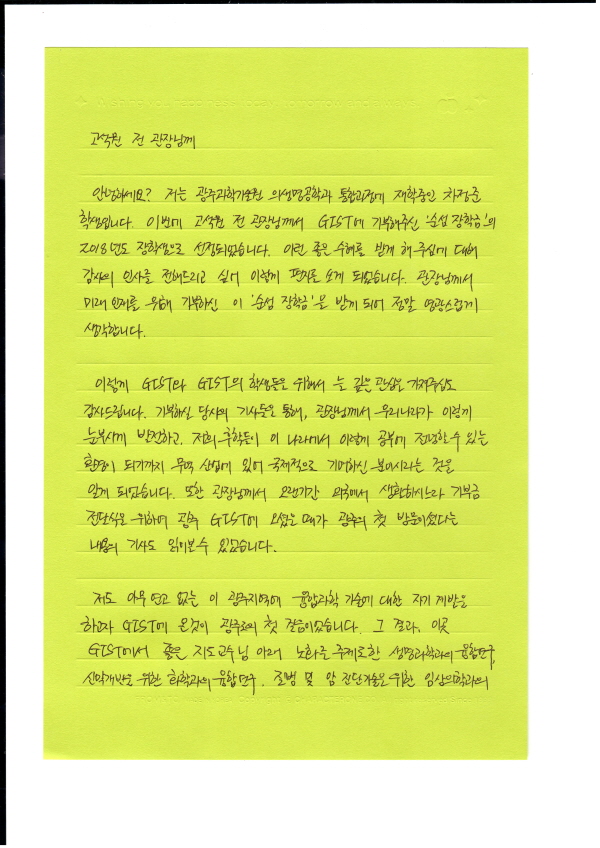 고석원 전 관장님께
안녕하세요? 저는 광주과학기술원 의생명공학과 통합과정에 재학중인 차정준
학생입니다. 이번에 고석원 전 관장님께서 GIST에 기부해주신 '순섬 장학금'의
2018년도 장학생으로 선정되었습니다. 이런 좋은 수혜를 받게 해 주심에 대해
감사의 인사를 전해드리고 싶어 이렇게 편지를 쓰게 되었습니다. 관장님께서
미래 인재를 위해 기부하신 이 '순섬 장학금'을 받게 되어 정말 영광스럽게
생각합니다.
이렇게 GIST와 GIST의 학생들을 위해서 늘 깊은 관심을 가져주심도
감사드립니다. 기부하실 당시의 기사들을 통해, 관장님께서 우리나라가 이렇게
눈부시게 발전하고, 저희 후학들이 이 나라에서 이렇게 공부에 전념할 수 있는
환경이 되기까지 무역 산업에 있어 국제적으로 기여하신 분이시라는 것을
알게 되었습니다. 또한 관장님께서 오랜기간 외국에서 생활하시느라 기부금
전달식을 위하여 광주 GIST에 오셨을 때가 광주의 첫 방문이셨다는
내용의 기사도 읽어볼 수 있었습니다.
저도 아무 연고 없는 이 광주지역에 융합과학 기술에 대한 자기 계발을
하고자 GIST에 온것이 광주로의 첫 걸음이었습니다. 그 결과, 이곳
GIST에서 좋은 지도교수님 아래 노화를 주제로한 생명과학과의 융합연구,
신약개발을 위한 화학과의 융합연구, 질병 및 암 진단기술을 위한 임상의학과의